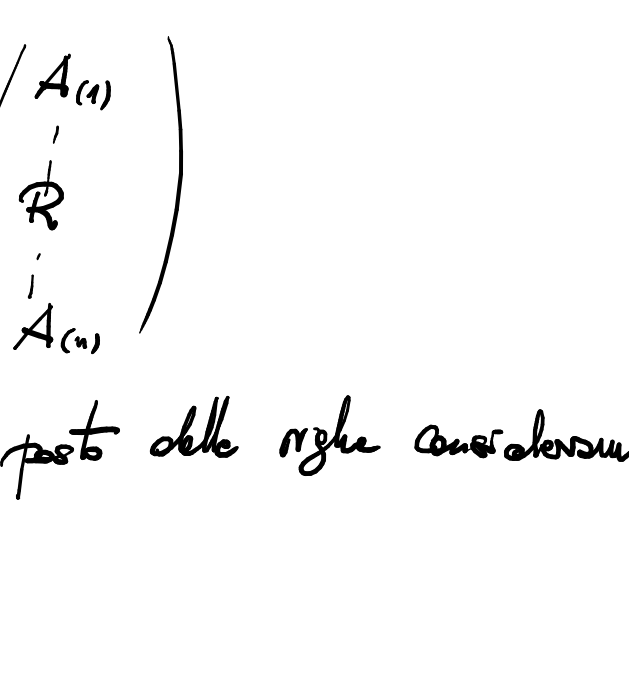 A(1)
R
A(n)
posto delle righe consideriam